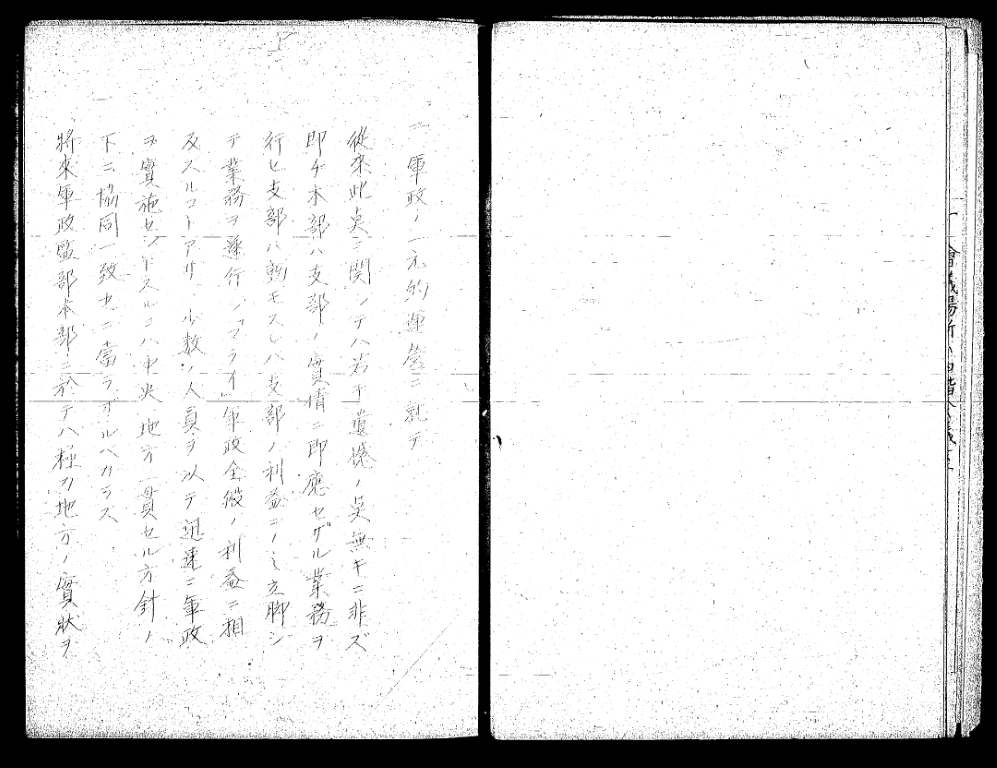 二 軍政ノ一元的運営ニ就テ
従来此点ニ関シテハ若干遺憾ノ点無キニ非ズ
即チ本部ハ支部ノ實情ニ即應セザル業務ヲ
行ヒ支部ハ動モスレバ支部ノ利益ニノミ立脚シ
テ業務ヲ遂行シ「マライ」軍政全般ノ利益ニ相
反スルコトアリ、少数ノ人員ヲ以テ迅速ニ軍政
ヲ實施セントスルニハ中央、地方一貫セル方針ノ
下ニ協同一致セニ當ラザルベカラズ
將来軍政監部本部ニ於テハ極力地方ノ實状ヲ
會議場所ハ四階